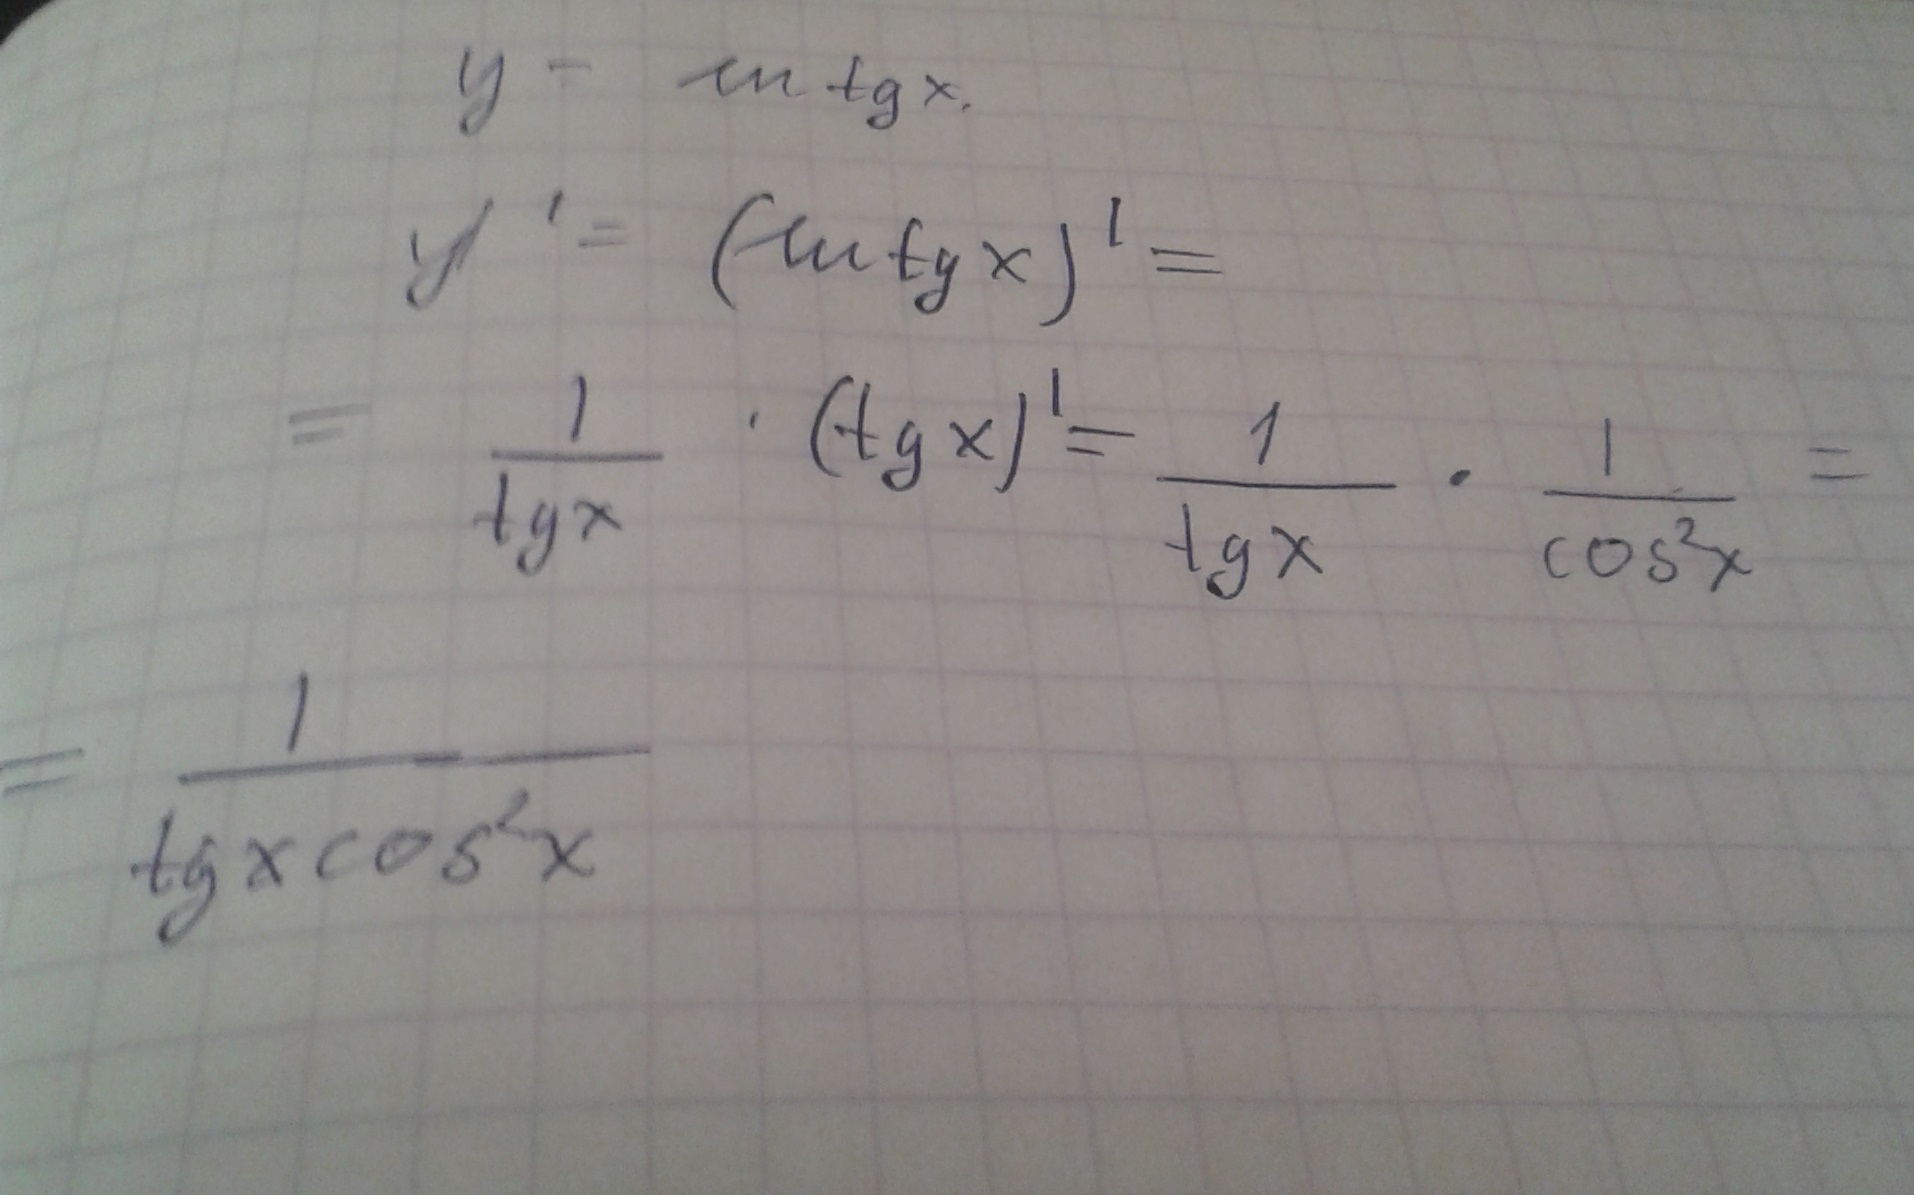 y = ln tg x.
y' = (ln tg x)' =
= 1/tg x · (tg x)' = 1/tg x · 1/cos²x =
= 1/tg x cos²x